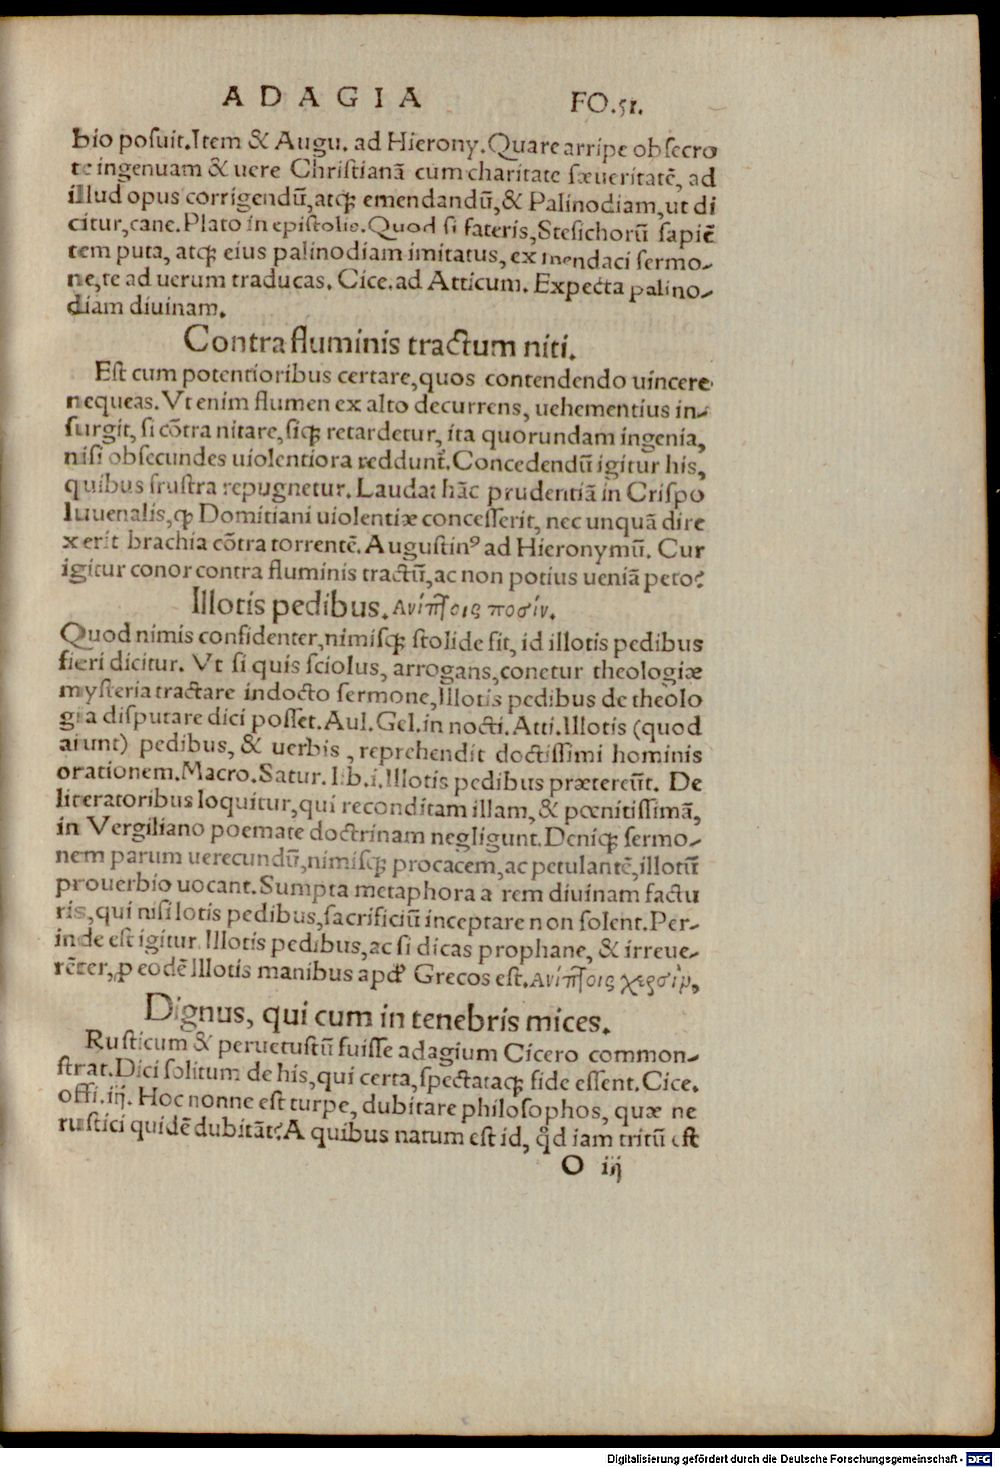 ADAGIA FO.51.
bio posuit. Item & Augu. ad Hierony. Quare arripe obsecro
te ingenuam & uere Christianā cum charitate sæueritatē, ad
illud opus corrigendū, atq; emendandū, & Palinodiam, ut di
citur, cane. Plato in epistolis. Quod si fateris, Stesichorū sapiē
tem puta, atq; eius palinodiam imitatus, ex mendaci sermo-
ne, te ad uerum traducas. Cice. ad Atticum. Expecta palino-
diam diuinam.
Contra fluminis tractum niti.
Est cum potentioribus certare, quos contendendo uincere
nequeas. Vt enim flumen ex alto decurrens, uehementius in-
surgit, si cōtra nitare, siq; retardetur, ita quorundam ingenia,
nisi obsecundes uiolentiora reddunt̃. Concedendū igitur his,
quibus frustra repugnetur. Laudat hāc prudentiā in Crispo
Iuuenalis, ꝙ Domitiani uiolentiæ concesserit, nec unquā dire
xerit brachia cōtra torrentē. Augustinꝰ ad Hieronymū. Cur
igitur conor contra fluminis tractū, ac non potius ueniā peto?
Illotis pedibus. Ανίπτοις ποσίν.
Quod nimis confidenter, nimisq; stolide fit, id illotis pedibus
fieri dicitur. Vt si quis sciolus, arrogans, conetur theologiæ
mysteria tractare indocto sermone, Illotis pedibus de theolo
gia disputare dici posset. Aul. Gel. in nocti. Atti. Illotis (quod
aiunt) pedibus, & uerbis, reprehendit doctissimi hominis
orationem. Macro. Satur. lib. i. Illotis pedibus prætereūt. De
literatoribus loquitur, qui reconditam illam, & pœnitissimā,
in Vergiliano poemate doctrinam negligunt. Deniq; sermo-
nem parum uerecundū, nimisq; procacem, ac petulantē, illotū
prouerbio uocant. Sumpta metaphora a rem diuinam factu
ris, qui nisi lotis pedibus, sacrificiū inceptare non solent. Per-
inde est igitur Illotis pedibus, ac si dicas prophane, & irreue-
rēter, ꝓ eodē Illotis manibus apđ Grecos est. Ανίπτοις χερσὶν,
Dignus, qui cum in tenebris mices.
Rusticum & peruetustū fuisse adagium Cicero common-
strat. Dici solitum de his, qui certa, spectataq; fide essent. Cice.
offi. iij. Hoc nonne est turpe, dubitare philosophos, quæ ne
rustici quidē dubitāt? A quibus natum est id, qđ iam tritū est
O iij
Digitalisierung gefördert durch die Deutsche Forschungsgemeinschaft - DFG